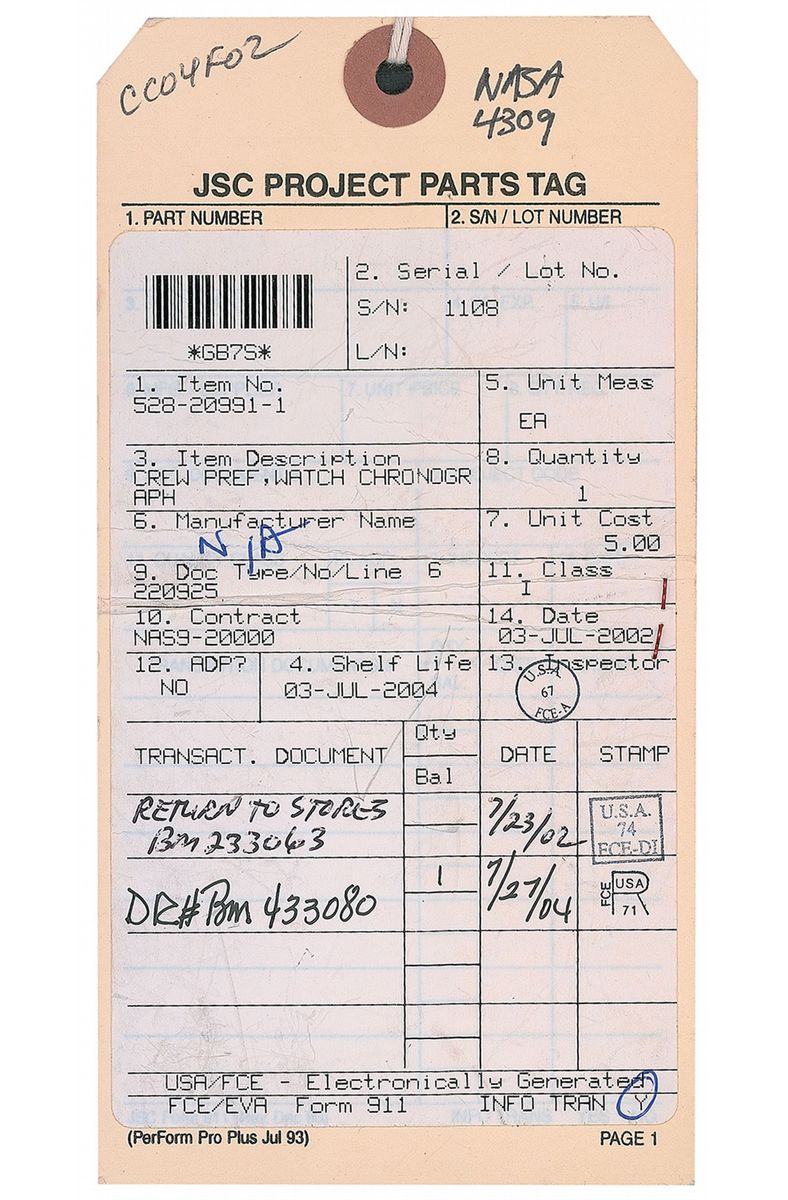 CC04F02
NASA
4309
JSC PROJECT PARTS TAG
1. PART NUMBER
2. S/N / LOT NUMBER
*GB7S*
2. Serial / Lot No.
S/N: 1108
L/N:
1. Item No.
528-20991-1
5. Unit Meas
EA
3. Item Description
CREW PREF,WATCH CHRONOGR
APH
8. Quantity
1
6. Manufacturer Name
N/A
7. Unit Cost
5.00
9. Doc Type/No/Line 6
220925
11. Class
I
10. Contract
NAS9-20000
14. Date
03-JUL-2002
12. ADP?
NO
4. Shelf Life
03-JUL-2004
13. Inspector
U.S.A
67
FCE-A
TRANSACT. DOCUMENT
Qty
Bal
DATE
STAMP
RETURN TO STORES
BM 233063
7/23/02
U.S.A.
74
FCE-DI
DR# BM 433080
1
7/27/04
FCE
USA
71
USA/FCE - Electronically Generated
FCE/EVA Form 911 INFO TRAN Y
(PerForm Pro Plus Jul 93)
PAGE 1